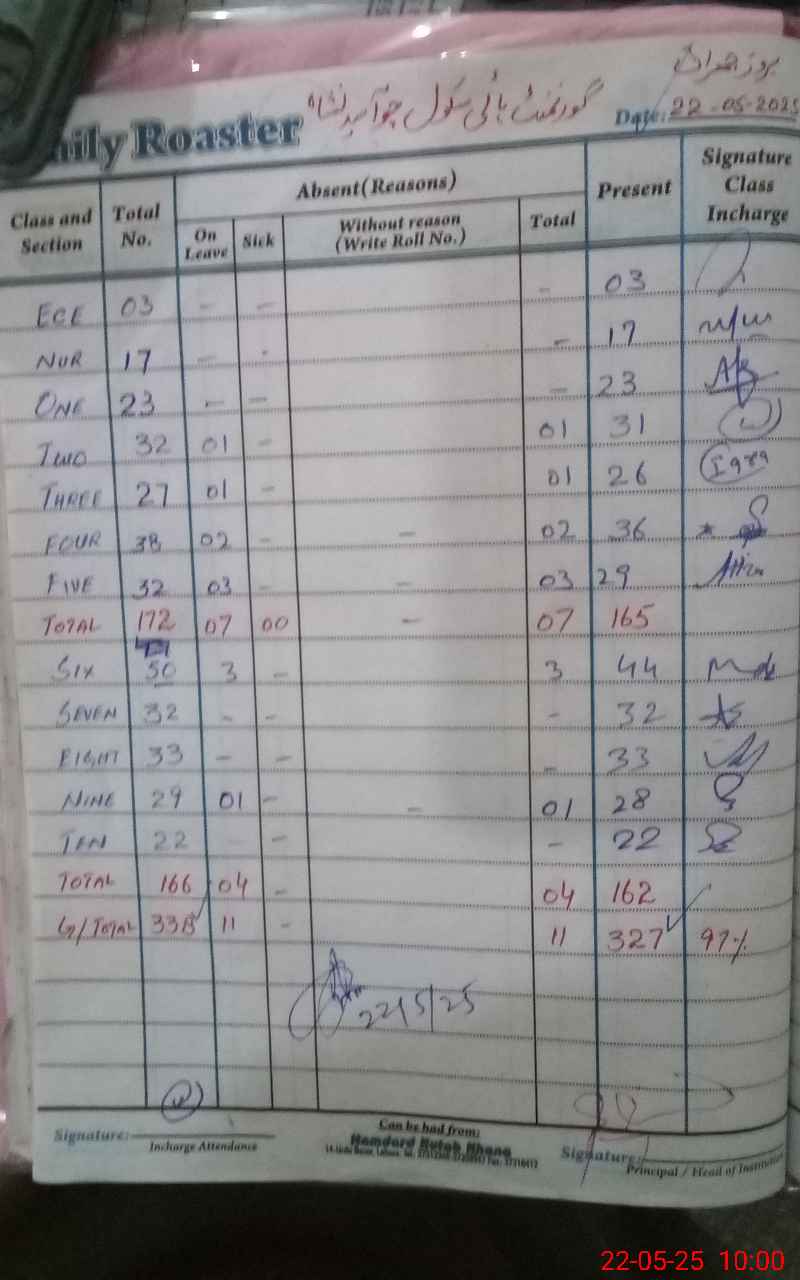 بروز جمعرات
گورنمنٹ ہائی سکول
Daily Roaster
Date: 22-05-2025
Class and Section
Total No.
Absent(Reasons)
On Leave
Sick
Without reason (Write Roll No.)
Total
Present
Signature Class Incharge
ECE 03 - - - 03
NUR 17 - - - 17
ONE 23 - - - 23
TWO 32 01 - 01 31
THREE 27 01 - 01 26 Iqra
FOUR 38 02 - - 02 36
FIVE 32 03 - - 03 29
TOTAL 172 07 00 - 07 165
SIX 50 3 - 3 44
SEVEN 32 - - - 32
EIGHT 33 - - - 33
NINE 29 01 - - 01 28
TEN 22 - - 22
TOTAL 166 04 - 04 162
G/TOTAL 338 11 - 11 327 97%
22/5/25
Signature: Incharge Attendance
Can be had from:
Hamdard Kutab Khana
Signature: Principal / Head of Institution
22-05-25 10:00